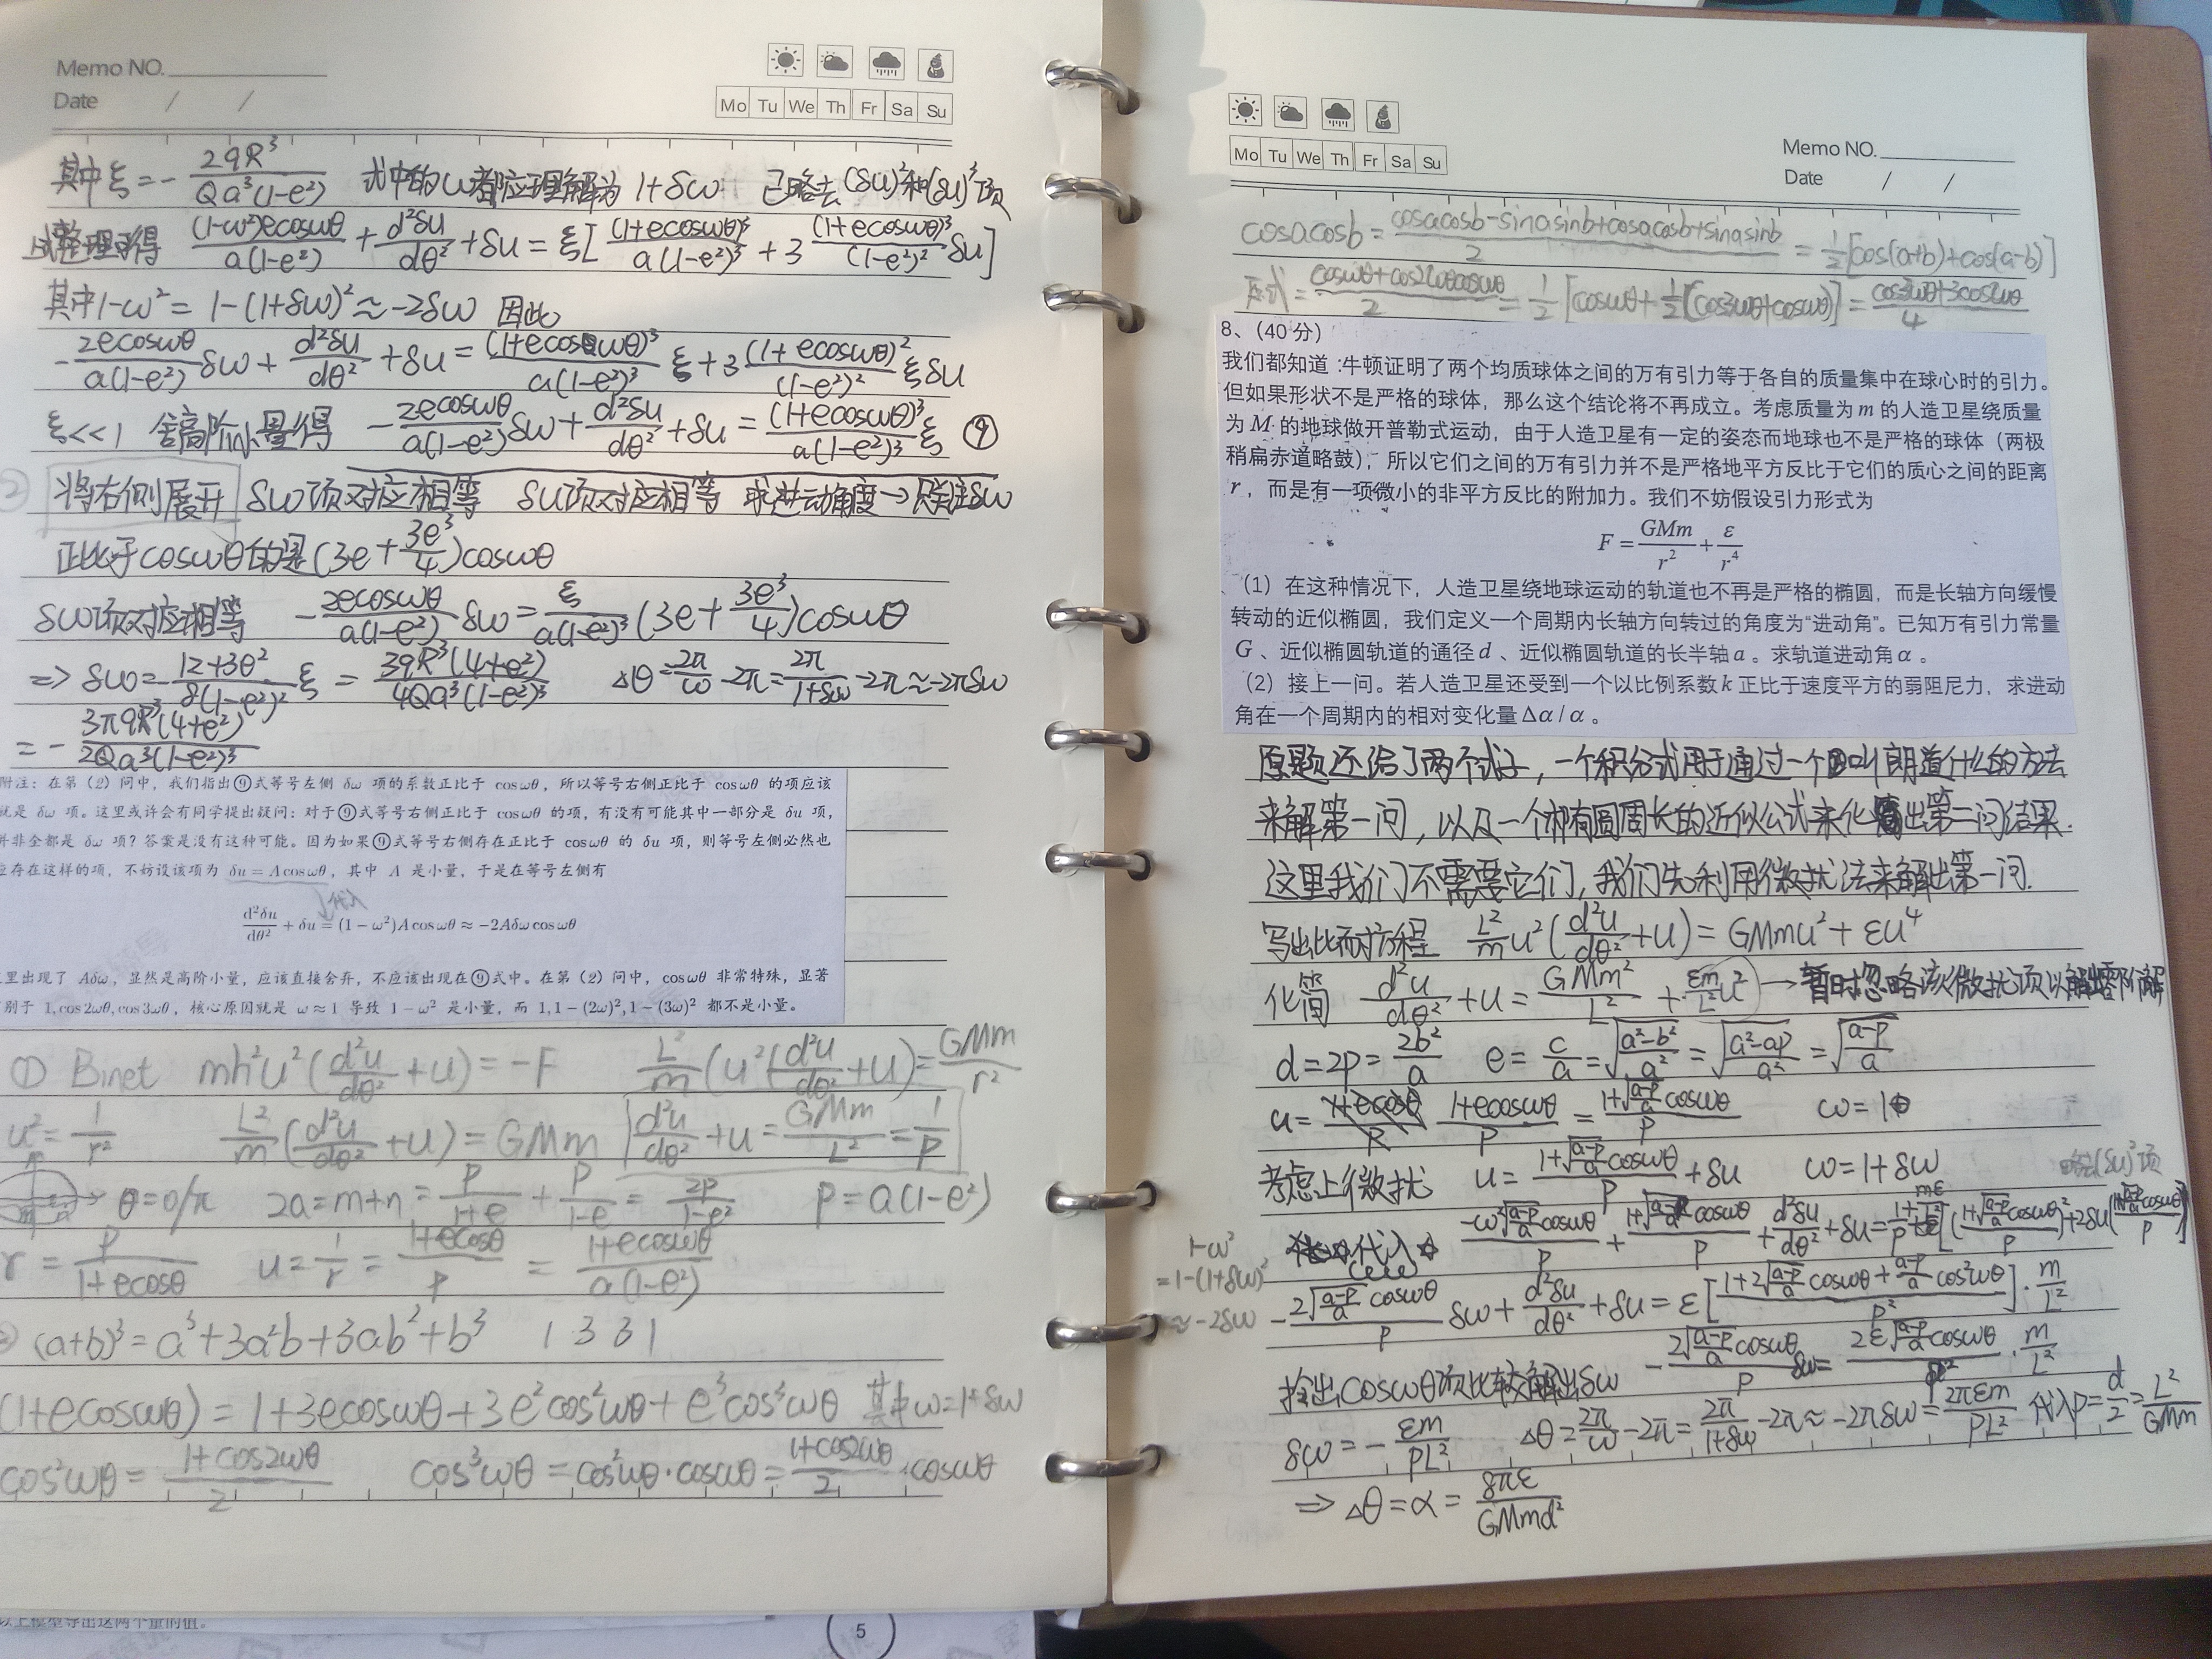 Memo NO.
Date / /
Mo Tu We Th Fr Sa Su
其中ξ=-2qR³/Qa³(1-e²) 式中的ω都应理解为1+δω 已略去(δu)²和(δu)³项
整理可得 (1-ω²)ecosωθ/a(1-e²) + d²δu/dθ² + δu = ξ[(1+ecosωθ)³/a(1-e²)³ + 3(1+ecosωθ)³/(1-e²)² δu]
其中1-ω²=1-(1+δω)²≈-2δω 因此
-2ecosωθ/a(1-e²) δω + d²δu/dθ² + δu = (1+ecosωθ)³/a(1-e²)³ ξ + 3(1+ecosωθ)²/(1-e²)² ξδu
ξ<<1 舍高阶小量得 -2ecosωθ/a(1-e²) δω + d²δu/dθ² + δu = (1+ecosωθ)³/a(1-e²)³ ξ ⑨
② 将右侧展开 δω项对应相等 δu项对应相等 求进动角度→只关注δω
正比于cosωθ的是(3e+3e³/4)cosωθ
δω项对应相等 -2ecosωθ/a(1-e²) δω = ξ/a(1-e²)³ (3e+3e³/4)cosωθ
=> δω=-12+3e²/8(1-e²)² ξ = 3qR³(4+e²)/4Qa³(1-e²)³ Δθ=2π/ω-2π=2π/1+δω-2π≈-2πδω
= -3πqR³(4+e²)/2Qa³(1-e²)³
附注：在第（2）问中，我们指出⑨式等号左侧 δω 项的系数正比于 cosωθ，所以等号右侧正比于 cosωθ 的项应该
就是 δω 项。这里或许会有同学提出疑问：对于⑨式等号右侧正比于 cosωθ 的项，有没有可能其中一部分是 δu 项，
并非全都是 δω 项？答案是没有这种可能。因为如果⑨式等号右侧存在正比于 cosωθ 的 δu 项，则等号左侧必然也
应存在这样的项，不妨设该项为 δu = A cosωθ，其中 A 是小量，于是在等号左侧有
代入
d²δu/dθ² + δu = (1 − ω²)A cosωθ ≈ −2Aδω cosωθ
里出现了 Aδω，显然是高阶小量，应该直接舍弃，不应该出现在⑨式中。在第（2）问中，cosωθ 非常特殊，显著
别于 1,cos2ωθ,cos3ωθ，核心原因就是 ω≈1 导致 1−ω² 是小量，而 1,1−(2ω)²,1−(3ω)² 都不是小量。
① Binet mh²u²(d²u/dθ²+u)=-F L²/m(u²(d²u/dθ²+u)=GMm/r²
u²=1/r² L²/m(d²u/dθ²+u)=GMm d²u/dθ²+u=GMm/L²=1/p
θ=0/π 2a=m+n=p/1+e+p/1-e=2p/1-e² p=a(1-e²)
r=p/1+ecosθ u=1/r=1+ecosθ/p=1+ecosωθ/a(1-e²)
(a+b)³=a³+3a²b+3ab²+b³ 1 3 3 1
(1+ecosωθ)=1+3ecosωθ+3e²cos²ωθ+e³cos³ωθ 其中ω=1+δω
cos²ωθ=1+cos2ωθ/2 cos³ωθ=cos²ωθ·cosωθ=1+cos2ωθ/2·cosωθ
以上模型导出这两个量的值。
5
Mo Tu We Th Fr Sa Su
Memo NO.
Date / /
cosacosb=cosacosb-sinasinb+cosacosb+sinasinb/2=1/2[cos(a+b)+cos(a-b)]
原式=cosωθ+cos2ωθcosωθ/2=1/2[cosωθ+1/2(cos3ωθ+cosωθ)]=cos3ωθ+3cosωθ/4
8、（40 分）
我们都知道：牛顿证明了两个均质球体之间的万有引力等于各自的质量集中在球心时的引力。
但如果形状不是严格的球体，那么这个结论将不再成立。考虑质量为 m 的人造卫星绕质量
为 M 的地球做开普勒式运动，由于人造卫星有一定的姿态而地球也不是严格的球体（两极
稍扁赤道略鼓），所以它们之间的万有引力并不是严格地平方反比于它们的质心之间的距离
r，而是有一项微小的非平方反比的附加力。我们不妨假设引力形式为
F = GMm/r² + ε/r⁴
（1）在这种情况下，人造卫星绕地球运动的轨道也不再是严格的椭圆，而是长轴方向缓慢
转动的近似椭圆，我们定义一个周期内长轴方向转过的角度为“进动角”。已知万有引力常量
G 、近似椭圆轨道的通径 d 、近似椭圆轨道的长半轴 a 。求轨道进动角 α 。
（2）接上一问。若人造卫星还受到一个以比例系数 k 正比于速度平方的弱阻尼力，求进动
角在一个周期内的相对变化量 Δα / α 。
原题还给了两个式子，一个积分式用于通过一个叫朗道什么的方法
来解第一问，以及一个椭圆周长的近似公式来化出第二问结果.
这里我们不需要它们，我们先利用微扰法来解出第一问.
写出比耐方程 L²/m u²(d²u/dθ²+u)=GMmu²+εu⁴
化简 d²u/dθ²+u=GMm²/L²+εm/L²u² → 暂时忽略该微扰项以解出零阶解
d=2p=2b²/a e=c/a=√(a²-b²/a²)=√(a²-ap/a²)=√(a-p/a)
u=1+ecosωθ/p=1+√(a-p/a)cosωθ/p ω=1
考虑上微扰 u=1+√(a-p/a)cosωθ/p+δu ω=1+δω 略去(δu)²项
代入 -ω²√(a-p/a)cosωθ/p+1+√(a-p/a)cosωθ/p+d²δu/dθ²+δu=1/p+mε/L²[(1+√(a-p/a)cosωθ/p)²+2δu(1+√(a-p/a)cosωθ/p)]
1-ω²
=1-(1+δω)²
≈-2δω
-2√(a-p/a)cosωθ/p δω+d²δu/dθ²+δu=ε[1+2√(a-p/a)cosωθ+a-p/a cos²ωθ/p²]·m/L²
拎出cosωθ项比较解出δω -2√(a-p/a)cosωθ/p δω=2ε√(a-p/a)cosωθ/p²·m/L²
δω=-εm/pL² Δθ=2π/ω-2π=2π/1+δω-2π≈-2πδω=2πεm/pL² 代入p=d/2=L²/GMm
=> Δθ=α=8πε/GMmd²